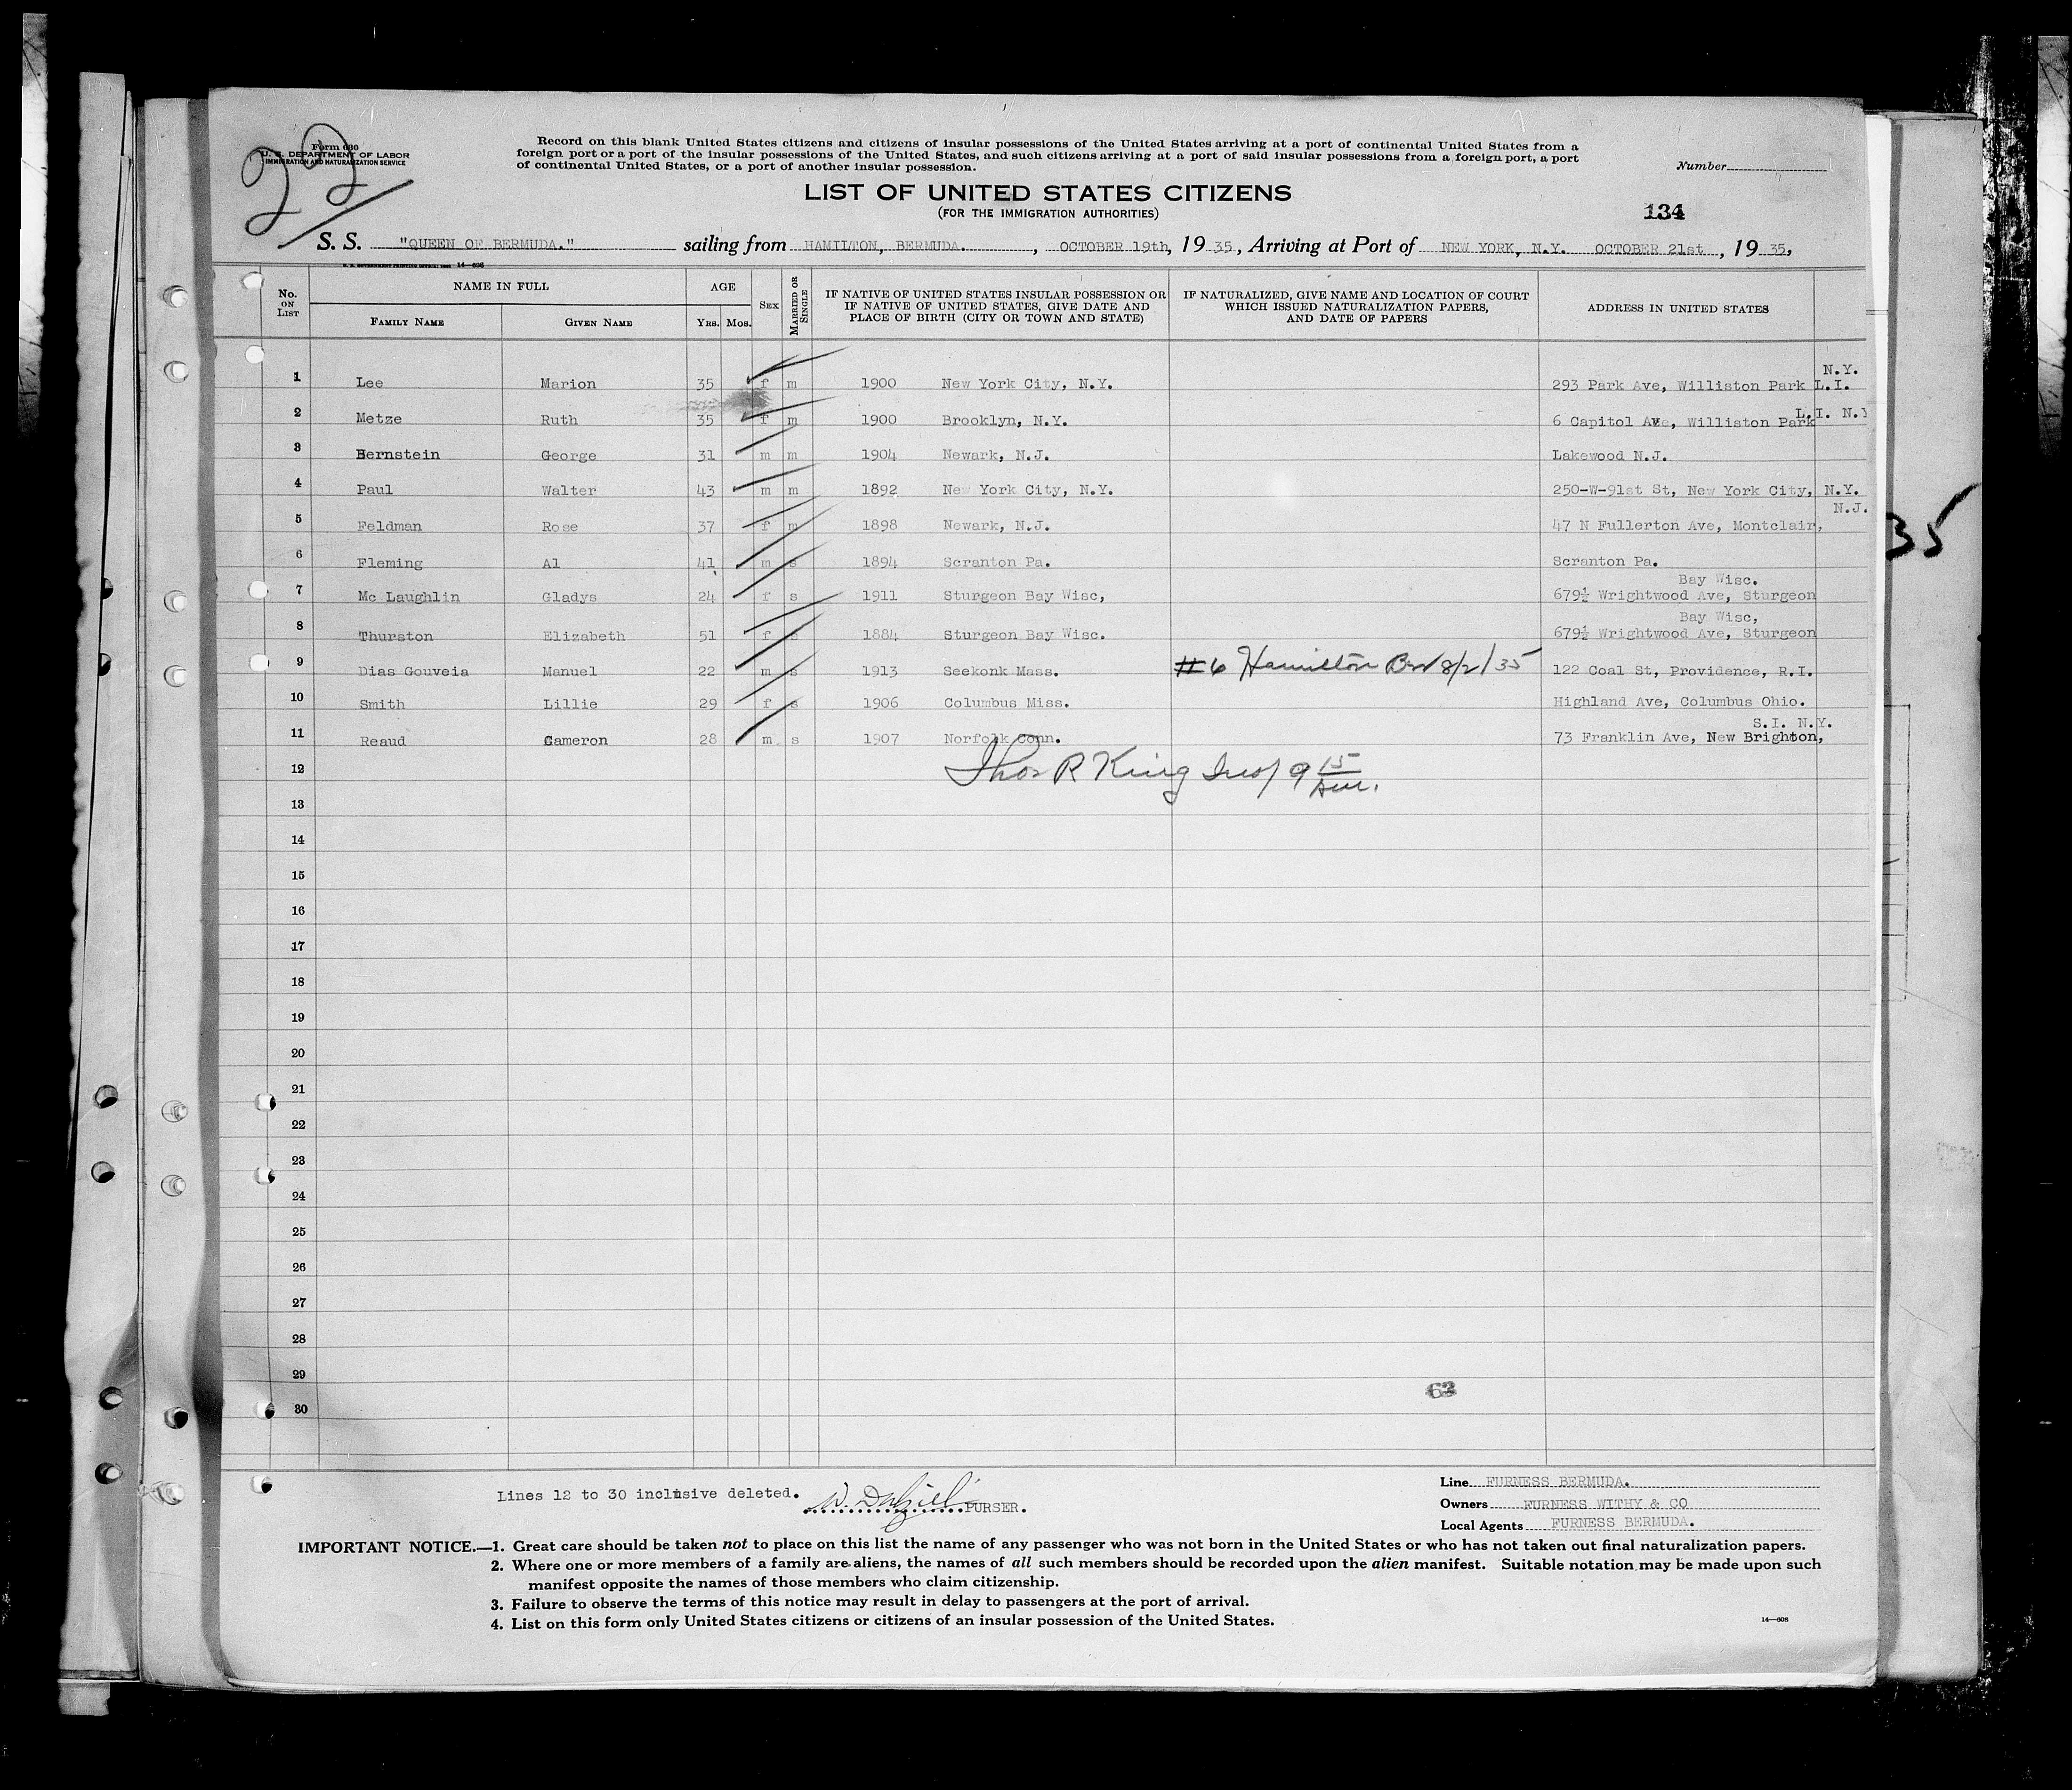 22
Form 630
U. S. DEPARTMENT OF LABOR
IMMIGRATION AND NATURALIZATION SERVICE
Record on this blank United States citizens and citizens of insular possessions of the United States arriving at a port of continental United States from a
foreign port or a port of the insular possessions of the United States, and such citizens arriving at a port of said insular possessions from a foreign port, a port
of continental United States, or a port of another insular possession.
Number
LIST OF UNITED STATES CITIZENS
(FOR THE IMMIGRATION AUTHORITIES)
134
S. S. "QUEEN OF BERMUDA." sailing from HAMILTON, BERMUDA. , OCTOBER 19th, 19 35, Arriving at Port of NEW YORK, N.Y. OCTOBER 21st , 19 35,
14—608
No. ON LIST NAME IN FULL AGE SEX MARRIED OR SINGLE IF NATIVE OF UNITED STATES INSULAR POSSESSION OR IF NATIVE OF UNITED STATES, GIVE DATE AND PLACE OF BIRTH (CITY OR TOWN AND STATE) IF NATURALIZED, GIVE NAME AND LOCATION OF COURT WHICH ISSUED NATURALIZATION PAPERS, AND DATE OF PAPERS ADDRESS IN UNITED STATES
FAMILY NAME GIVEN NAME YRS. MOS.
N.Y.
1 Lee Marion 35 f m 1900 New York City, N.Y. 293 Park Ave, Williston Park L.I.
L.I. N.Y
2 Metze Ruth 35 f m 1900 Brooklyn, N.Y. 6 Capitol Ave, Williston Park
3 Bernstein George 31 m m 1904 Newark, N.J. Lakewood N.J.
4 Paul Walter 43 m m 1892 New York City, N.Y. 250-W-91st St, New York City, N.Y.
N.J.
5 Feldman Rose 37 f m 1898 Newark, N.J. 47 N Fullerton Ave, Montclair,
35
6 Fleming Al 41 m s 1894 Scranton Pa. Scranton Pa.
Bay Wisc.
7 Mc Laughlin Gladys 24 f s 1911 Sturgeon Bay Wisc, 679½ Wrightwood Ave, Sturgeon
Bay Wisc,
8 Thurston Elizabeth 51 f s 1884 Sturgeon Bay Wisc. 679½ Wrightwood Ave, Sturgeon
9 Dias Gouveia Manuel 22 m s 1913 Seekonk Mass. #6 Hamilton Ber 8/2/35 122 Coal St, Providence, R.I.
10 Smith Lillie 29 f s 1906 Columbus Miss. Highland Ave, Columbus Ohio.
S.I. N.Y.
11 Reaud Cameron 28 m s 1907 Norfolk Conn. 73 Franklin Ave, New Brighton,
12 Thos R King Insp 9 15 Am.
13
14
15
16
17
18
19
20
21
22
23
24
25
26
27
28
29
63
30
Lines 12 to 30 inclusive deleted. W. Dalziel PURSER.
Line FURNESS BERMUDA.
Owners FURNESS WITHY & CO
Local Agents FURNESS BERMUDA.
IMPORTANT NOTICE.—1. Great care should be taken not to place on this list the name of any passenger who was not born in the United States or who has not taken out final naturalization papers.
2. Where one or more members of a family are aliens, the names of all such members should be recorded upon the alien manifest. Suitable notation may be made upon such
manifest opposite the names of those members who claim citizenship.
3. Failure to observe the terms of this notice may result in delay to passengers at the port of arrival.
4. List on this form only United States citizens or citizens of an insular possession of the United States.
14—608